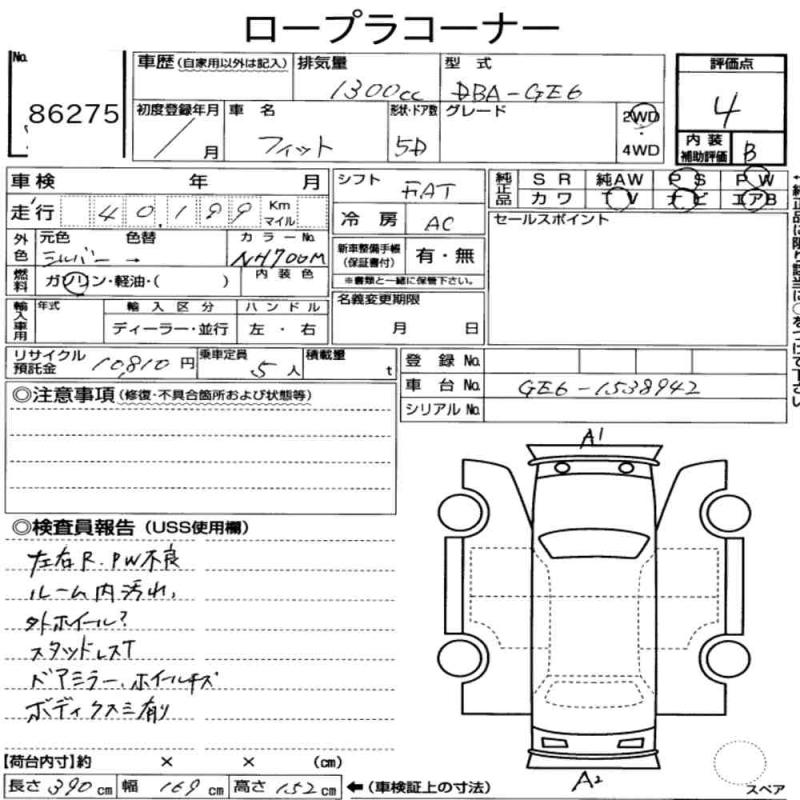 ロープラコーナー
No.
86275
車歴 (自家用以外は記入)
排気量
1300cc
型式
DBA-GE6
評価点
4
初度登録年月
/ 月
車名
フィット
形状・ドア数
5D
グレード
2WD
・
4WD
内装
補助評価
B
車検 年 月
シフト
FAT
純正品
SR 純AW PS PW
カワ TV ナビ エアB
走行 40,199 Km
マイル
冷房
AC
セールスポイント
外色
元色 色替
シルバー →
カラーNo.
NH700M
新車整備手帳
(保証書付)
有・無
※書類と一緒に保管下さい。
燃料
ガソリン・軽油・( )
内装色
輸入車用
年式
輸入区分
ディーラー・並行
ハンドル
左・右
名義変更期限
月 日
リサイクル
預託金
10,810円
乗車定員
5人
積載量
t
登録No.
車台No.
GE6-1538942
シリアルNo.
◎注意事項 (修復・不具合箇所および状態等)
◎検査員報告 (USS使用欄)
左右R.PW不良
ルーム内汚れ,
外ホイール?
スタッドレスT
ドアミラー、ホイールキズ
ボディクスミ有り
A1
A2
スペア
【荷台内寸】約 × × (cm)
長さ 390 cm 幅 169 cm 高さ 152 cm
←(車検証上の寸法)
←純正品に限り該当に○をつけて下さい